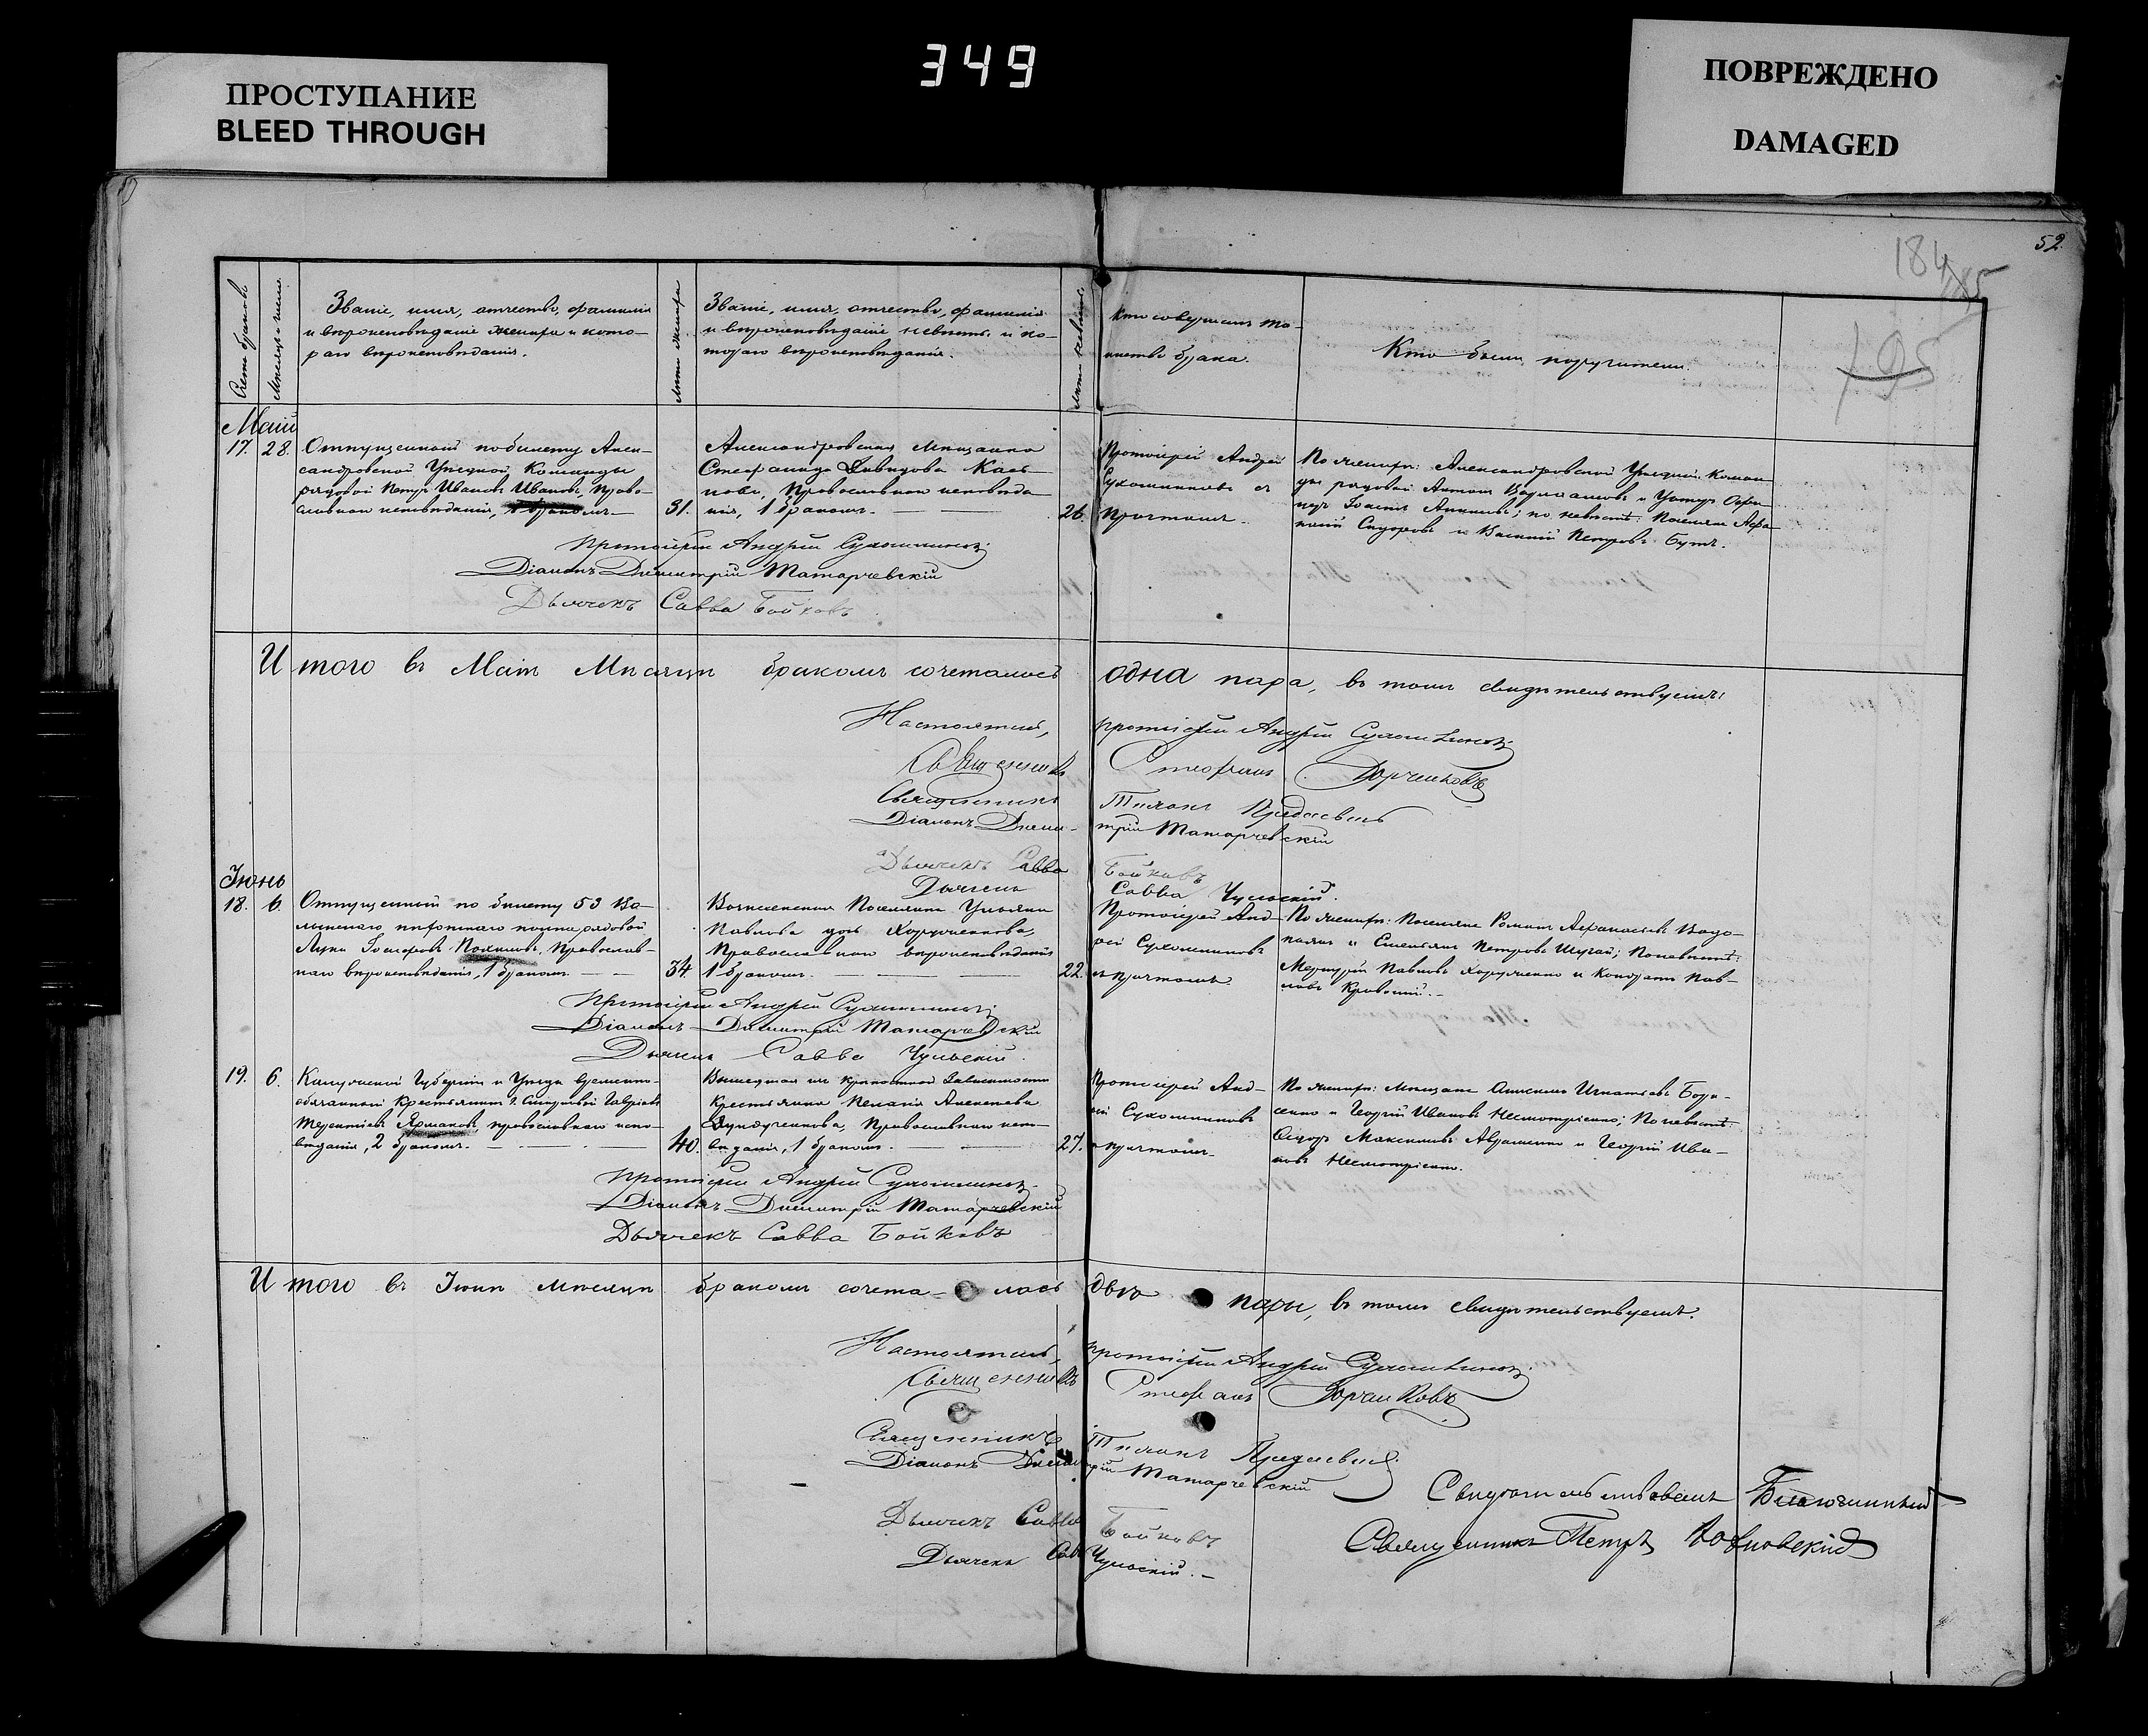 349
ПРОСТУПАНИЕ
BLEED THROUGH
ПОВРЕЖДЕНО
DAMAGED
52
184
185
195
Счетъ браковъ
Мѣсяцъ и число
Званіе, имя, отчество, фамилія
и вѣроисповѣданіе жениха и кото-
раго вѣроисповѣданія.
Лѣта жениха
Званіе, имя, отчество, фамилія
и вѣроисповѣданіе невѣсты и ко-
тораго вѣроисповѣданія.
Лѣта невѣсты
Кто совершалъ та-
инство брака.
Кто были поручители.
Маій
17. 28. Отпущенный по билету Алек-
сандровской Уѣздной Команды
рядовой Петръ Ивановъ Ивановъ, Право-
славнаго исповѣданія, 1 бракомъ
31.
Александровская мѣщанка
Стефанида Давидова
Православнаго исповѣда-
нія, 1 бракомъ.
26.
Протоіерей Андрей
Сухомлиновъ съ
причтомъ.
По женихѣ: Александровской Уѣздной Коман-
ды рядовой Антонъ и Унтеръ Офи-
церъ по невѣстѣ: Поселяне
Сидоровъ и Василій Петровъ Бутъ.
Протоіерей Андрей Сухомлиновъ
Діаконъ Димитрій Татарчевскій
Дьячекъ Савва Бойковъ
И того въ Маіѣ Мѣсяцѣ бракомъ сочеталось одна пара, въ томъ свидѣтельствуемъ:
Настоятель, протоіерей Андрей Сухомлиновъ
Священникъ Стефанъ
Священникъ Тихонъ
Діаконъ Димитрій Татарчевскій
Дьячекъ Савва Бойковъ
Дьячекъ Савва Чульскій.
Іюнь
18. 6. Отпущенный по билету 53 Во-
лынскаго пѣхотнаго полка рядовой
Лука Православ-
наго вѣроисповѣданія, 1 бракомъ.
34
Вознесенская Поселянка Ульяна
Павлова дочь Хорученкова,
Православнаго вѣроисповѣданія
1 бракомъ.
22.
Протоіерей Анд-
рей Сухомлиновъ
съ причтомъ
По женихѣ: Поселяне Романъ Афанасьевъ
и Емельянъ Петровъ Шугай; По невѣстѣ:
Меркурій Павловъ Хорученко и Кондратъ Пав-
ловъ
Протоіерей Андрей Сухомлиновъ
Діаконъ Димитрій Татарчевскій
Дьячекъ Савва Чульскій.
19. 6. Калужской Губерніи и Уѣзда временно-
обязанный Крестьянинъ
Терентіевъ православнаго испо-
вѣданія, 2 бракомъ.
40.
Вышедшая изъ крѣпостной зависимости
Крестьянка Пелагія Алексѣева
Православнаго испо-
вѣданія, 1 бракомъ.
27.
Протоіерей Анд-
рей Сухомлиновъ
съ причтомъ
По женихѣ: Мѣщане Игнатьевъ
и Георгій Ивановъ По невѣстѣ
Ѳедоръ Максимовъ Авраменко и Георгій Ива-
новъ
Протоіерей Андрей Сухомлиновъ
Діаконъ Димитрій Татарчевскій
Дьячекъ Савва Бойковъ
И того въ Іюнѣ мѣсяцѣ бракомъ сочета-лось двѣ пары, въ томъ свидѣтельствуемъ.
Настоятель, протоіерей Андрей Сухомлиновъ
Священникъ Стефанъ
Священникъ Тихонъ
Діаконъ Димитрій Татарчевскій
Дьячекъ Савва Бойковъ
Дьячекъ Савва Чульскій.
Свидѣтельствовалъ Благочинный
Священникъ Петръ